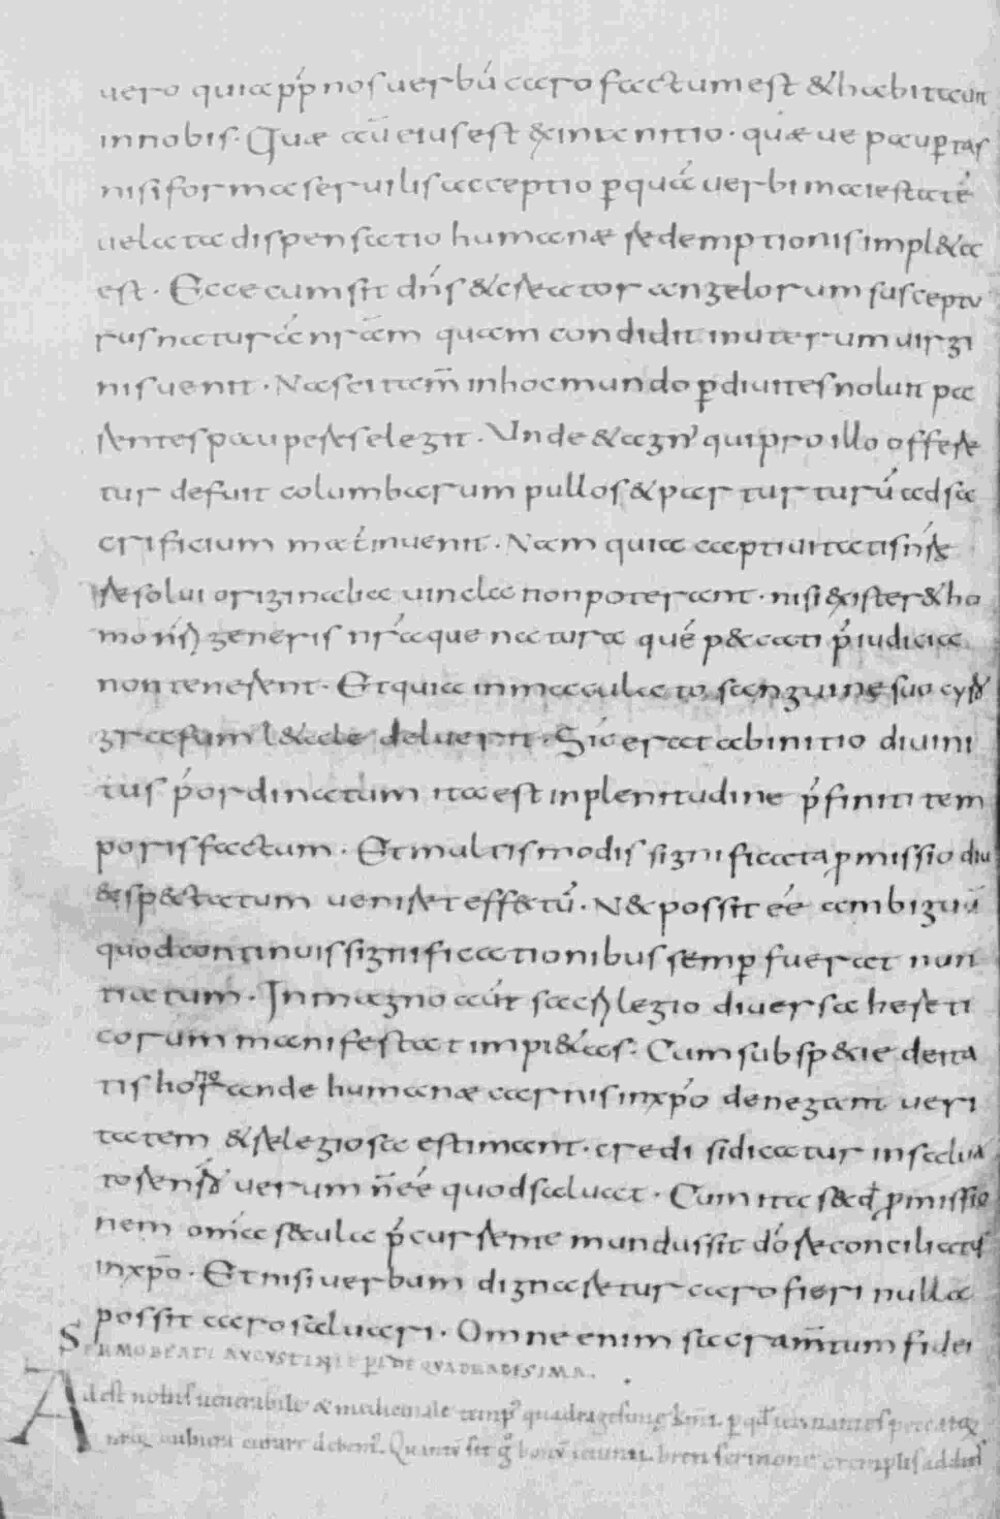 uero quia pp nos uerbú caro factum est & habitauit
in nobis. Quæ aū eius est exinanitio. quæ ue paupertas
nisi formae seruilis acceptio p quá uerbi maiestaté
uelata dispensatio humanæ redemptionis impl&a
est. Ecce cum sit dn̄s & creator angelorum susceptu
rus naturá nrām quam condidit in uterum uirgi
nis uenit. Nasci tam̄ in hoc mundo p diuites noluit pa
rentes pauperes elegit. Unde & agn' qui pro illo offere
tur defuit columbarum pullos & par turturū ad sa
crificium mat́ inuenit. Nam quia captiuitatis nr̄e
resolui originalia uincla non poterant. nisi exister& ho
mo nr̄i generis nrāque natura qué peccati p̄iudicia
non tenerent. Et quia inmaculato sanguine suo cyro
grafum l&ale deluerit. Sic erat ab initio diuini
tus p̄ordinatum ita est in plenitudine p̄finiti tem
poris factum. Et multis modis significata pmissio diu
exspectatum ueniret effectū. N& possit eé ambiguū
quod continuis significationibus semp fuerat nun
tiatum. In magno aút sacrilegio diuersa hereti
corum manifestat impi&as. Cum sub specie deita
tis honorande humanæ carnis in xpo denegant ueri
tatem & relegiosa estimant. credi si dicatur in salua
tore nro uerum n̄ eé quod saluat. Cum ita secd pmissio
nem omia secula p̄currente mundus sit dō reconciliatus
in xpō. Et nisi uerbum dignaretur caro fieri nulla
possit caro saluari. Omne enim sacramtum fidei
SERMO BEATI AVGVSTINI EPI DE QVADRAGESIMA.
Adest nobis uenerabile & medicinale temp' quadragesimę kmi. p qd uernantes peccatorꝝ
nrorꝝ uulnera curare debem'. Quantū sit g bonū ieiunii. breui sermone exemplis addius